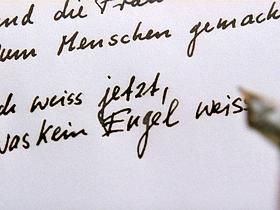 und die Frau
zum Menschen gemach
ch weiss jetzt,
was kein Engel weiss